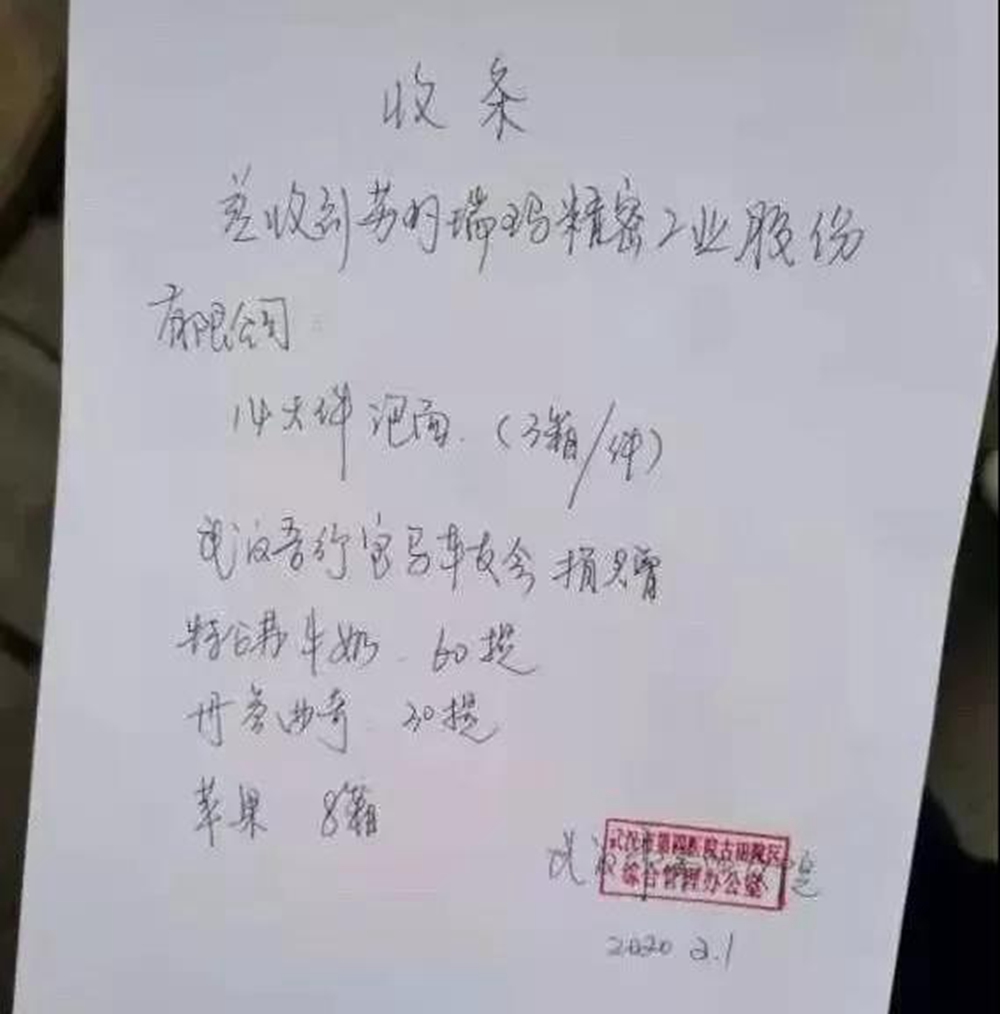 收条
差收到苏州瑞玛精密工业股份
有限公司
14大件泡面.(3箱/件)
武汉吾行宝马车友会捐赠
特仑苏牛奶. 60提
丹麦曲奇. 30提
苹果 8箱
武汉
武汉市第四医院古田院区
综合管理办公室
2020 2.1